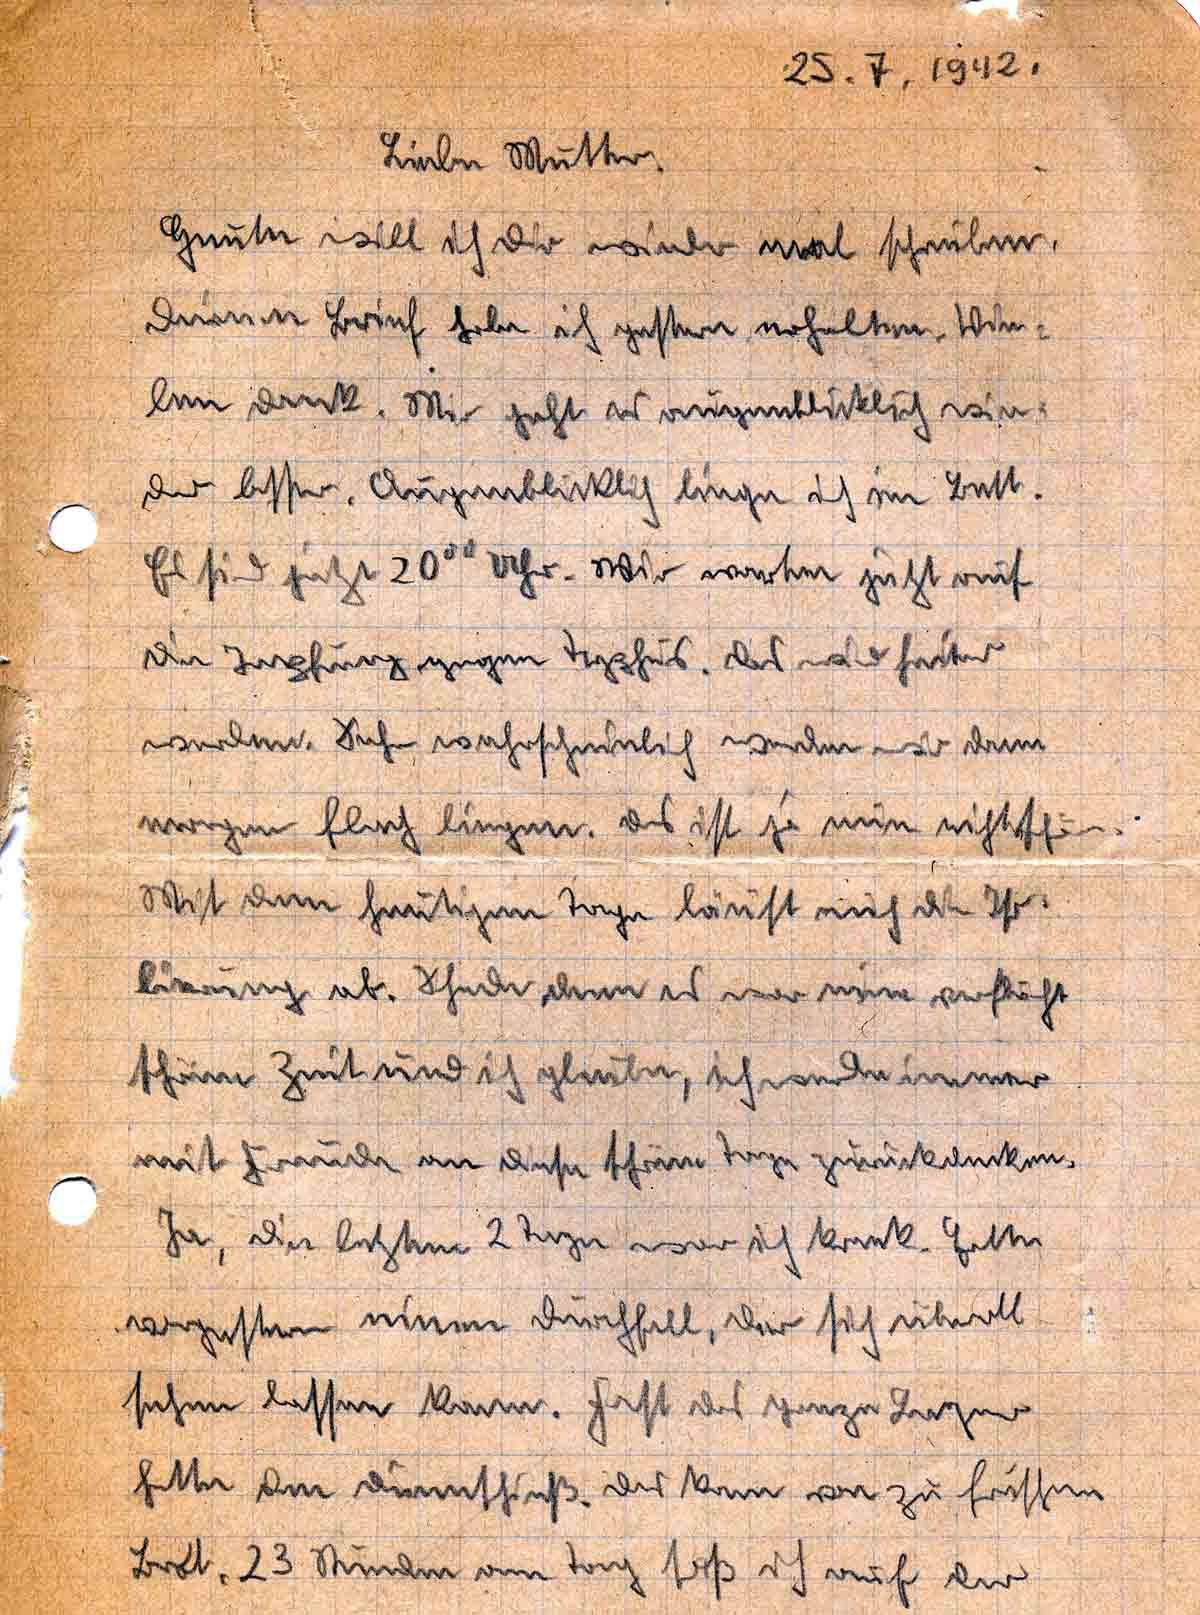 25.7.1942.
Liebe Mutter.
Heute will ich Dir wieder mal schreiben.
Deinen Brief habe ich gestern erhalten. Vie-
len Dank. Mir geht es augenblicklich wie-
der besser. Augenblicklich liege ich im Bett.
Es sind jetzt 20⁰⁰ Uhr. Wir warten jetzt auf
die Impfung gegen Typhus. Das wird heiter
werden. Sehr wahrscheinlich werden wir dann
morgen flach liegen. Das ist ja nun nicht schön.
Mit dem heutigen Tage läuft auch die Iso-
lierung ab. Schade, denn es war eine verflucht
schöne Zeit und ich glaube, ich werde immer
mit Freude an diese schöne Tage zurückdenken.
Ja, die letzten 2 Tage war ich krank. Hatte
vorgestern einen Durchfall, der sich überall
sehen lassen kann. Fast das ganze Lager
hatte den Dünnschieß. Das kam von zu frischem
Brot. 23 Stunden am Tag saß ich auf der